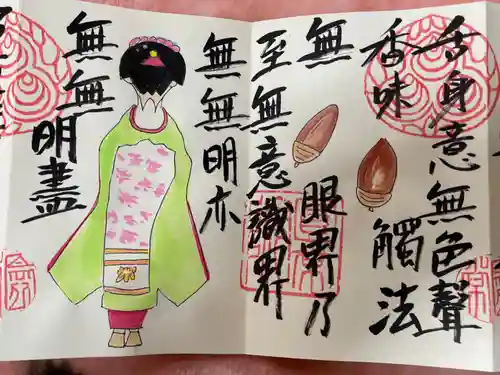 舌身意無色聲
香味
觸法
無
眼界乃
至無意識界
無無明亦
無無
明盡